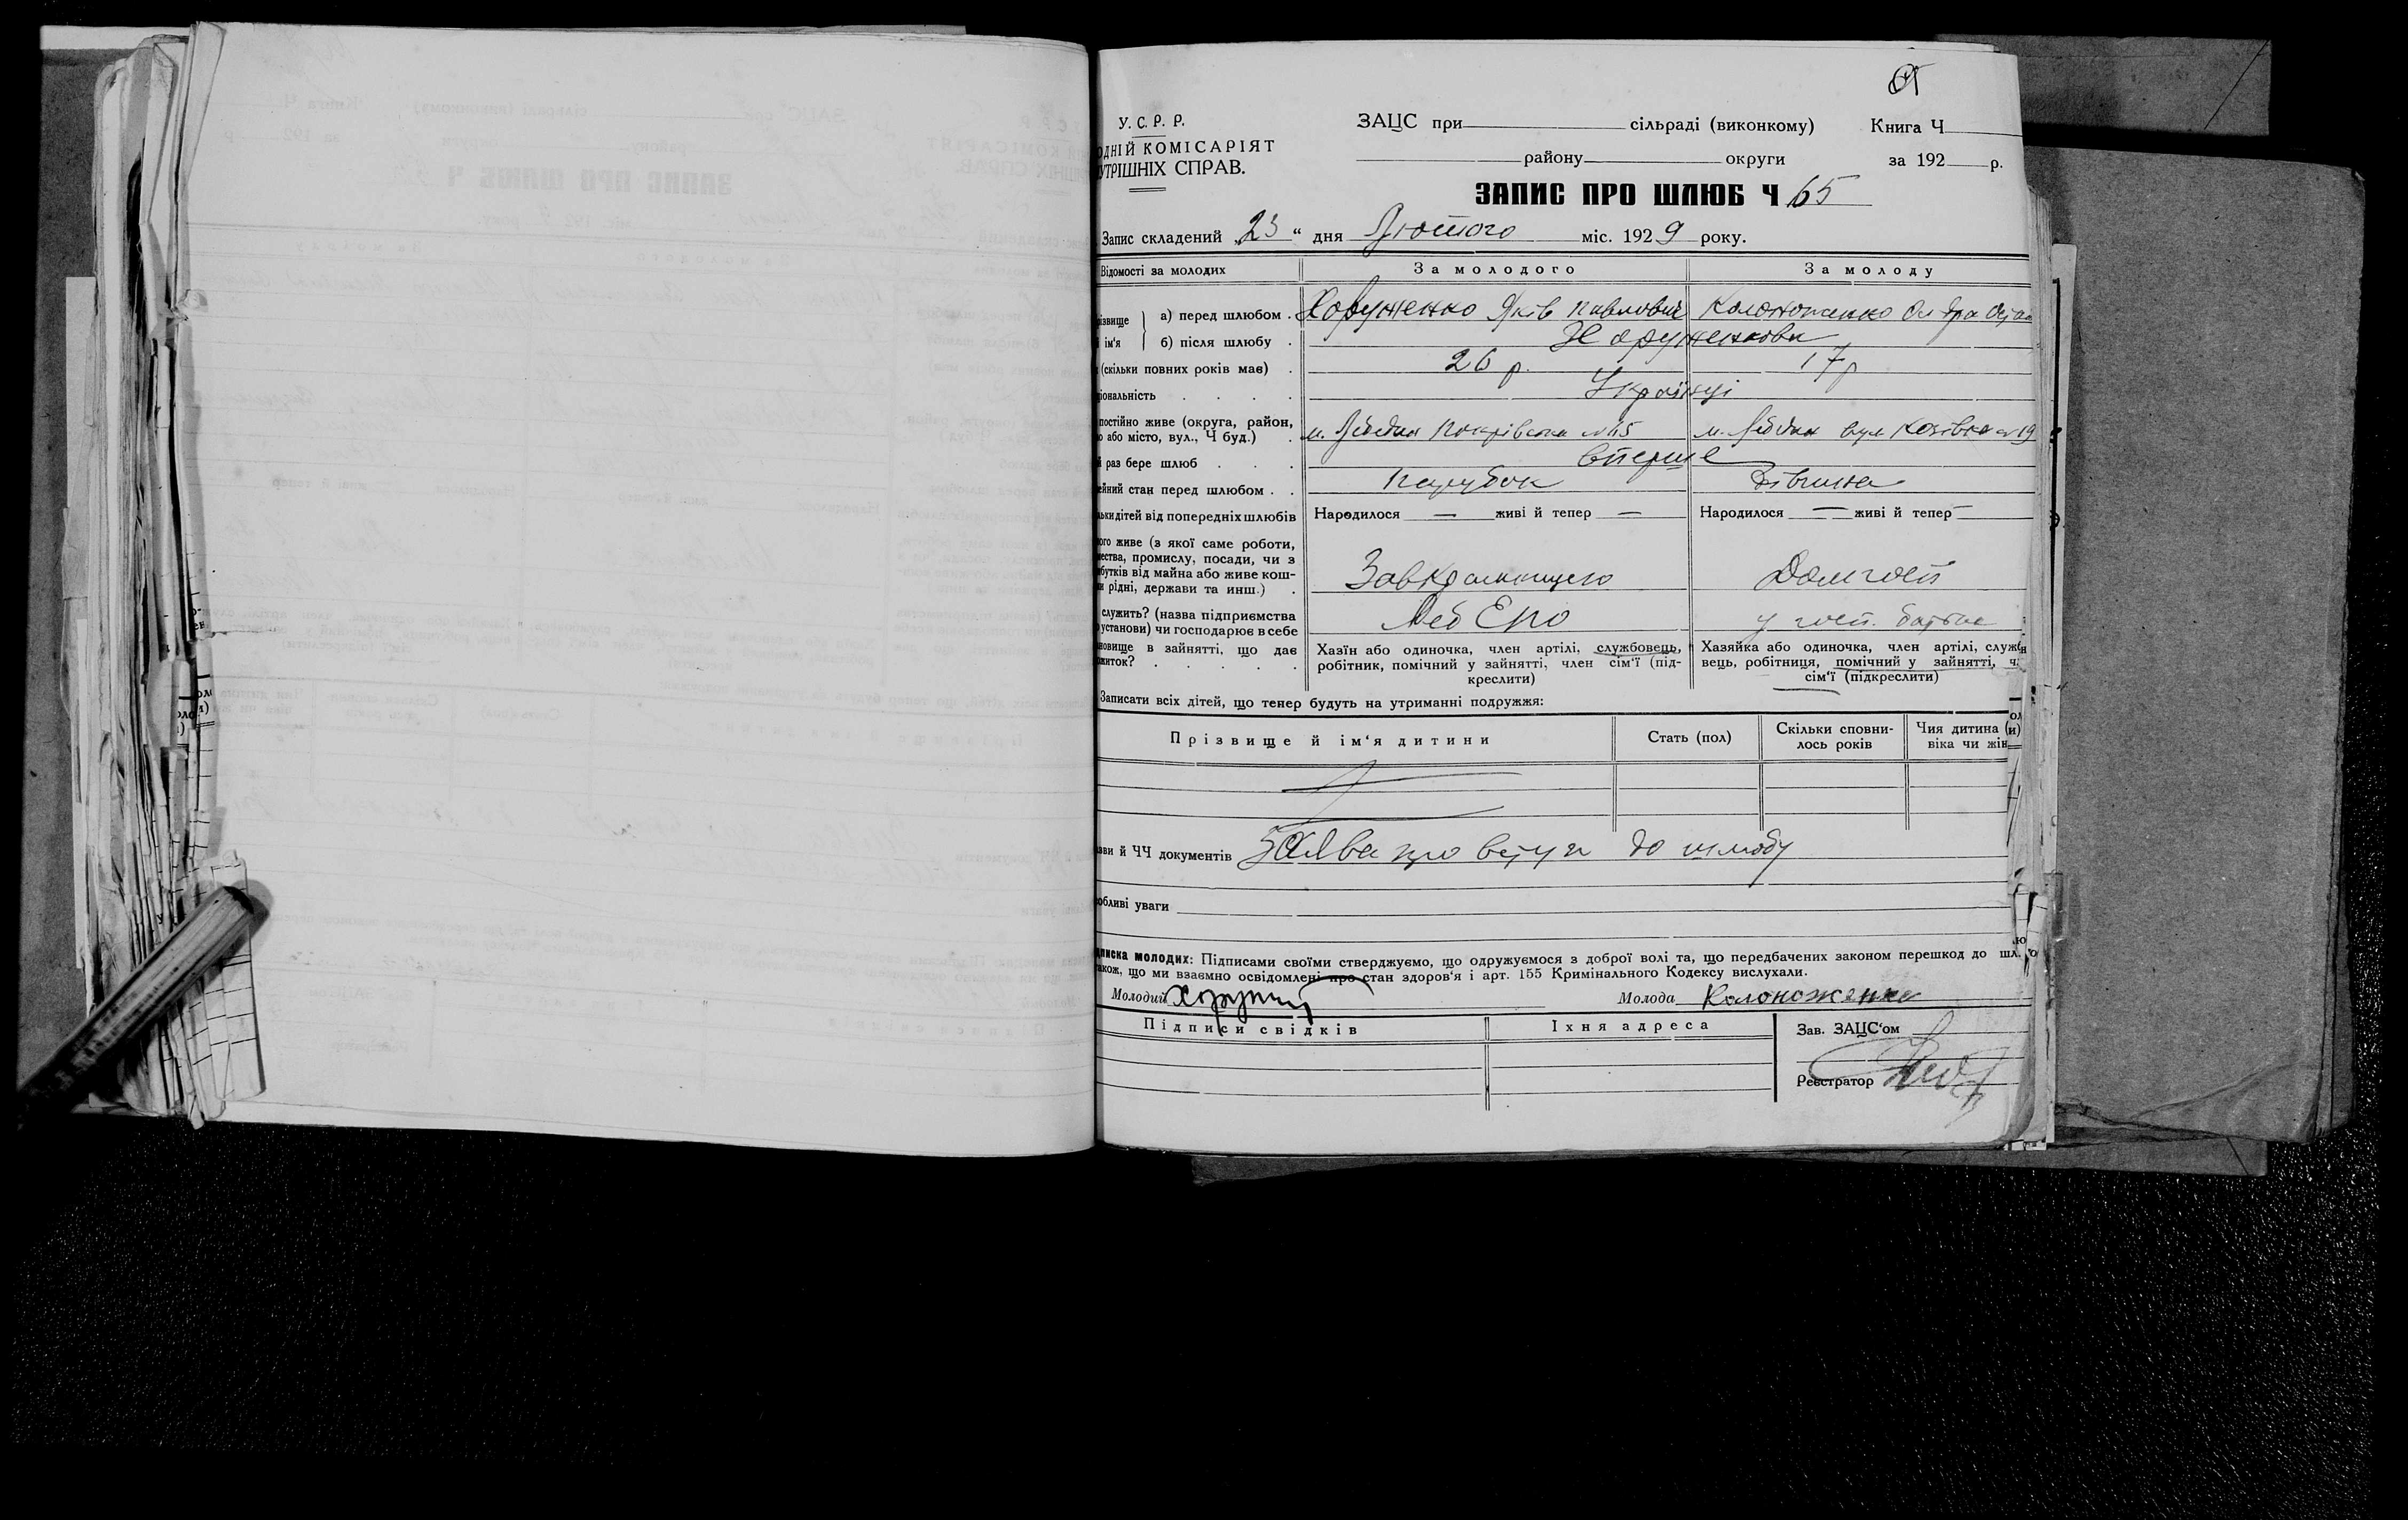 У. С. Р. Р.
ОДНІЙ КОМІСАРІЯТ
УТРІШНІХ СПРАВ.
ЗАЦС при сільраді (виконкому) Книга Ч
району округи за 192 р.
ЗАПИС ПРО ШЛЮБ Ч 65
Запис складений „23“ дня Лютого міс. 1929 року.
Відомості за молодих За молодого За молоду
ізвище а) перед шлюбом . Хоруженко Яків Павлович Колоноженко
й ім'я б) після шлюбу . Хоруженкова
(скільки повних років має) . 26 р. 17 р
іональність . . . . Українці
постійно живе (округа, район,
о або місто, вул., Ч буд.) . м. Лебедин Покрівська №45 м. Лебедин вул Козівка №19
й раз бере шлюб . . . вперше
ейний стан перед шлюбом . . Парубок Дівчина
ьки дітей від попередніх шлюбів Народилося — живі й тепер — Народилося — живі й тепер —
ого живе (з якої саме роботи,
ества, промислу, посади, чи з
бутків від майна або живе кош-
и рідні, держави та инш.) . Завкрамницею Домгосп
служить? (назва підприємства
установи) чи господарює в себе Леб ЕПО у госп. батька
новище в зайнятті, що дає
житок? . . . . .
Хазїн або одиночка, член артілі, службовець,
робітник, помічний у зайнятті, член сім'ї (під-
креслити)
Хазяйка або одиночка, член артілі, служ
вець, робітниця, помічний у зайнятті, ч
сім'ї (підкреслити)
Записати всіх дітей, що тепер будуть на утриманні подружжя:
Прізвище й ім'я дитини Стать (пол) Скільки сповни-
лось років Чия дитина
віка чи жін
зви й ЧЧ документів Заява про вступ до шлюбу
обливі уваги
дписка молодих: Підписами своїми стверджуємо, що одружуємося з доброї волі та, що передбачених законом перешкод до шл
акож, що ми взаємно освідомлені про стан здоров'я і арт. 155 Кримінального Кодексу вислухали.
Молодий Молода Колоноженко
Підписи свідків Їхня адреса Зав. ЗАЦС'ом
Реєстратор